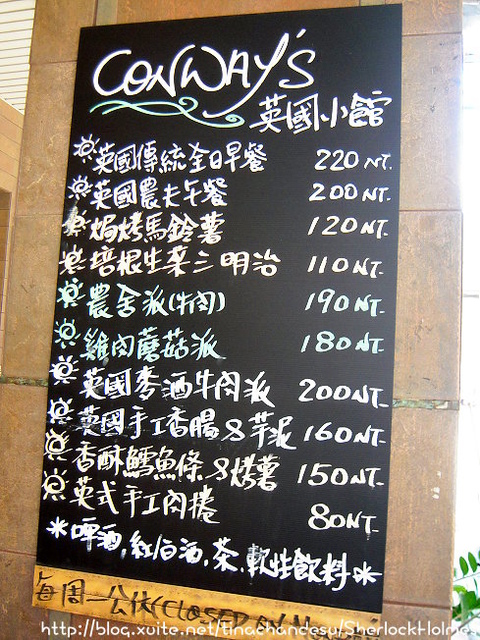 CONWAY'S
英國小館
英國傳統全日早餐 220 NT.
英國農夫午餐 200 NT.
焗烤馬鈴薯 120 NT.
培根生菜三明治 110 NT.
農舍派(牛肉) 190 NT.
雞肉蘑菇派 180 NT.
英國麥酒牛肉派 200 NT.
英國手工香腸&芋泥 160 NT.
香酥鱈魚條&烤薯 150 NT.
英式手工肉捲 80 NT.
*啤酒,紅白酒,茶,軟性飲料*
每周一公休(CLOSED ON
http://blog.xuite.net/tinachandesu/SherlockHolmes